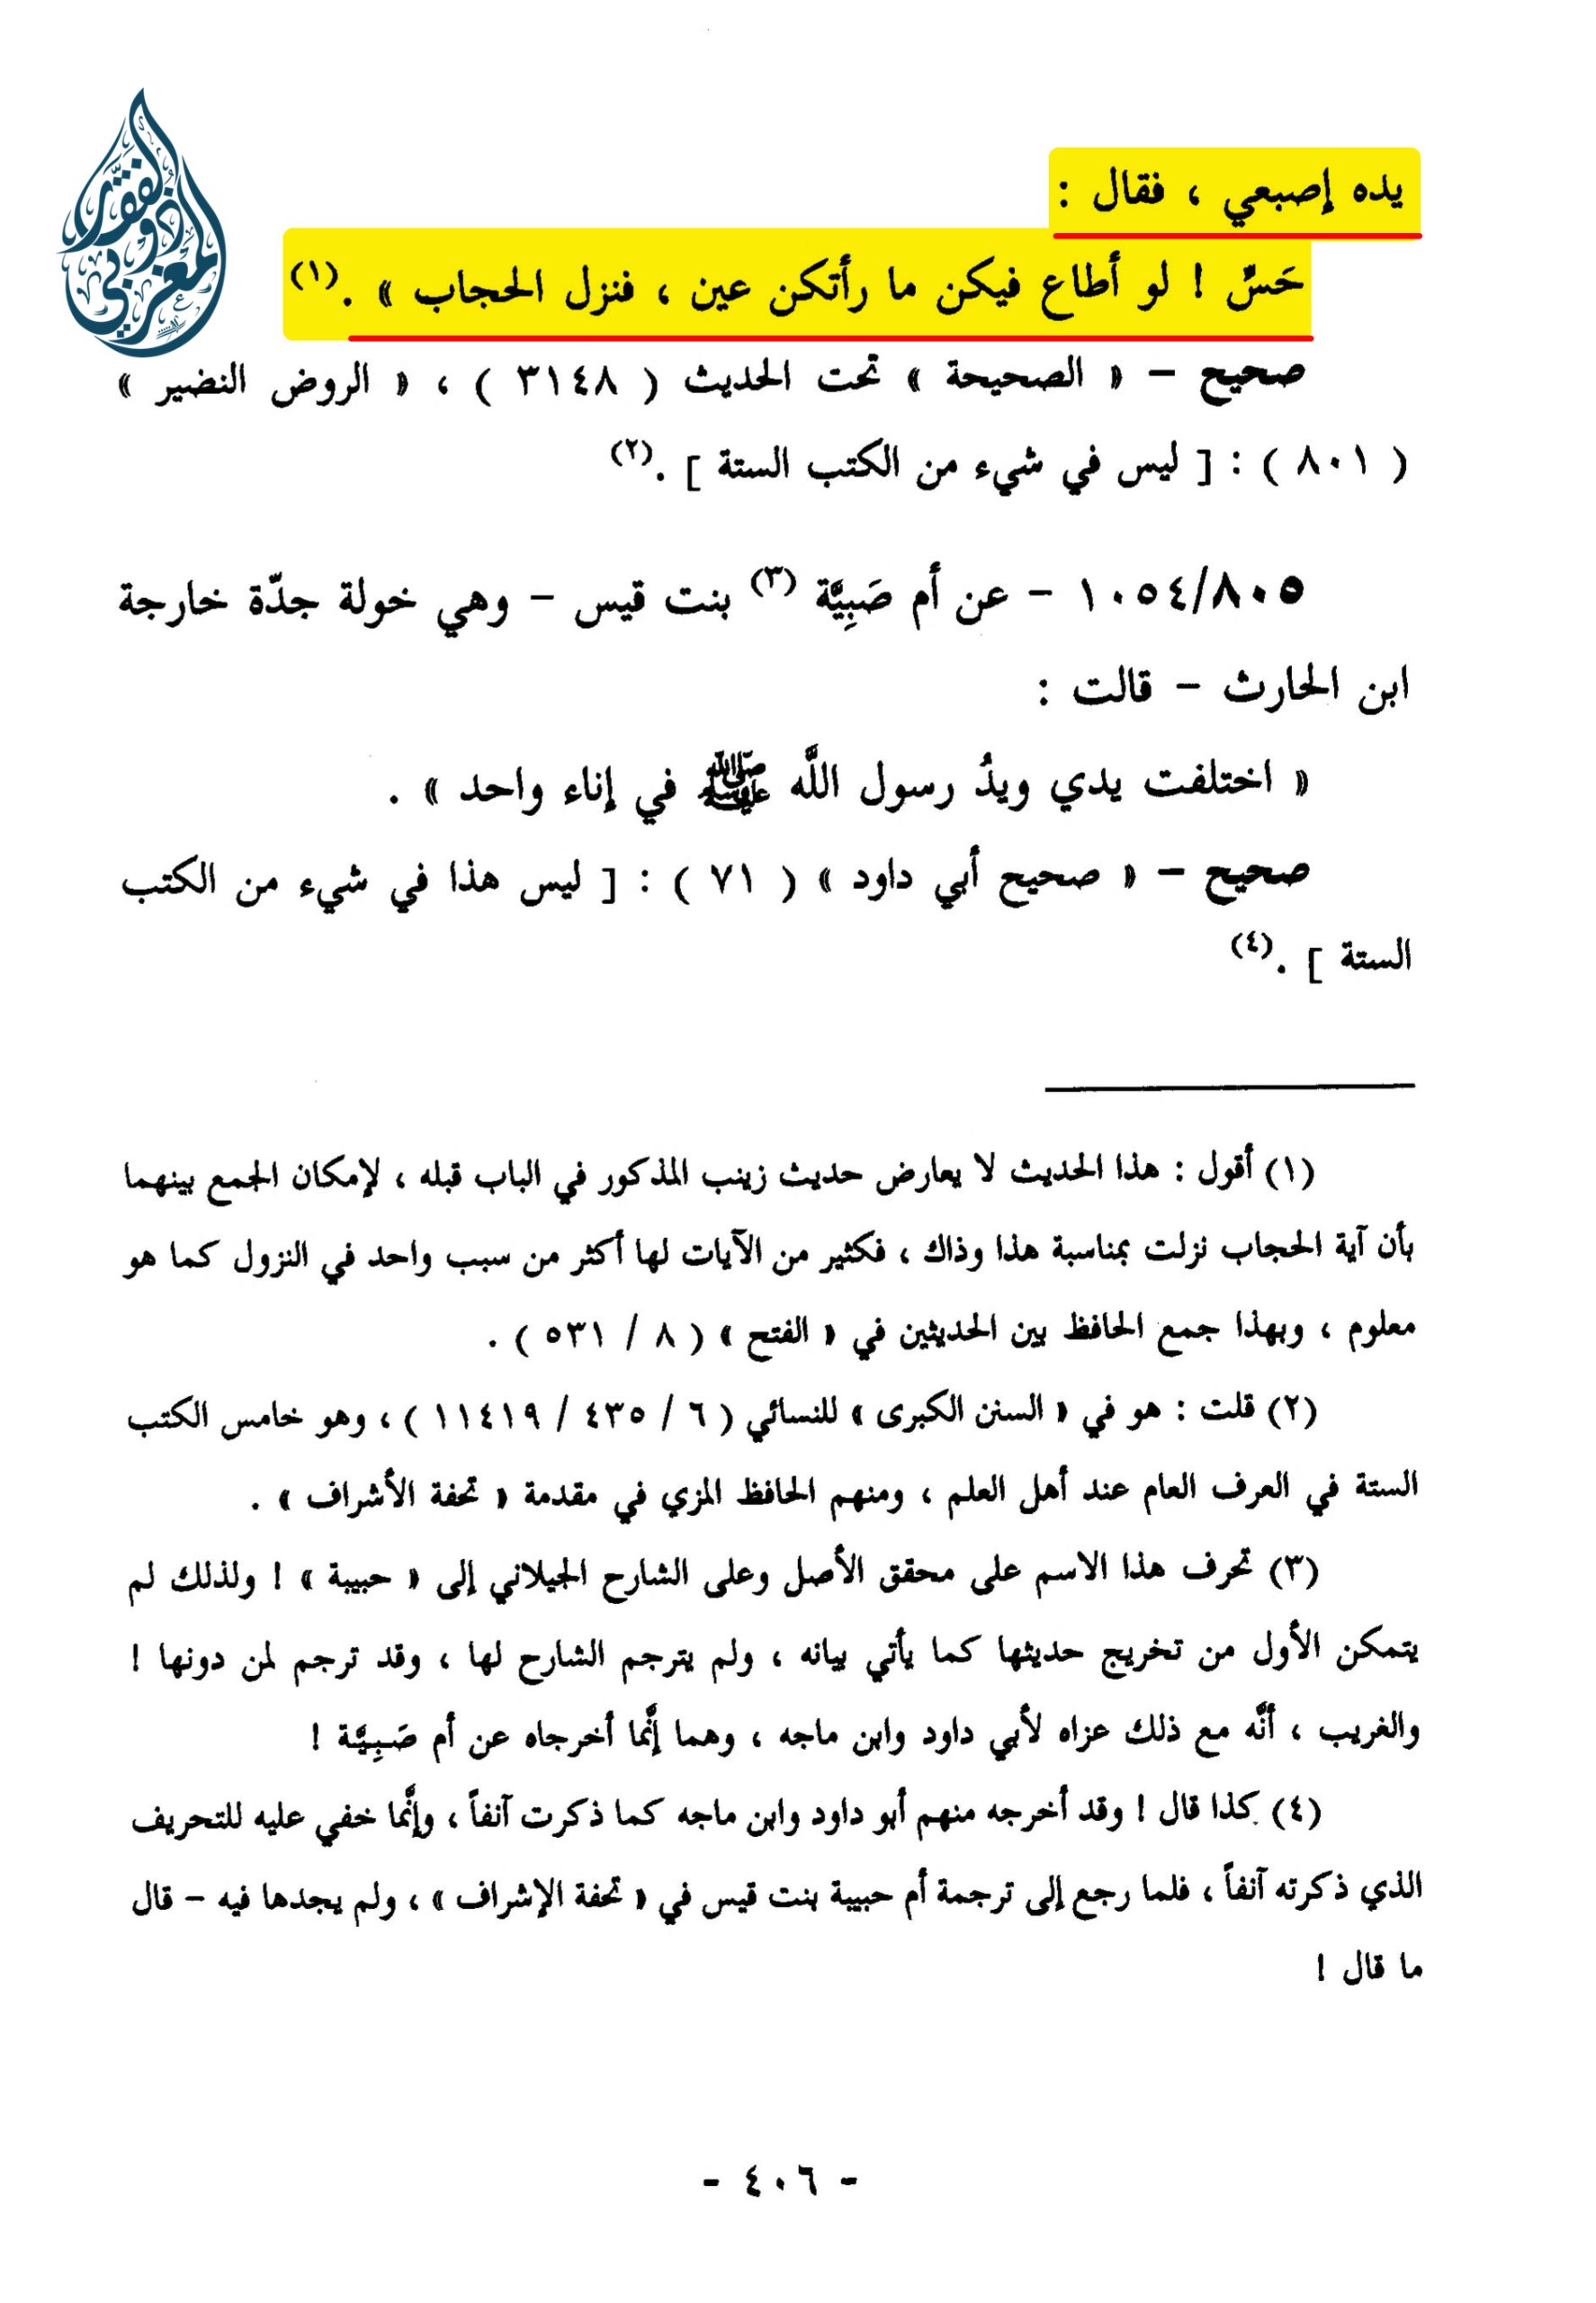 يده إصبعي ، فقال :
حَسِّ ! لو أطاع فيكن ما رأتكن عين ، فنزل الحجاب » .(١)
صحيح – « الصحيحة » تحت الحديث ( ٣١٤٨ ) ، « الروض النضير »
( ٨٠١ ) : [ ليس في شيء من الكتب الستة ] .(٢)
١٠٥٤/٨٠٥ – عن أم صَبِيَّة (٣) بنت قيس – وهي خولة جدّة خارجة
ابن الحارث – قالت :
« اختلفت يدي ويدُ رسول اللَّه ﷺ في إناء واحد » .
صحيح – « صحيح أبي داود » ( ٧١ ) : [ ليس هذا في شيء من الكتب
الستة ] .(٤)
(١) أقول : هذا الحديث لا يعارض حديث زينب المذكور في الباب قبله ، لإمكان الجمع بينهما
بأن آية الحجاب نزلت بمناسبة هذا وذاك ، فكثير من الآيات لها أكثر من سبب واحد في النزول كما هو
معلوم ، وبهذا جمع الحافظ بين الحديثين في « الفتح » ( ٨ / ٥٣١ ) .
(٢) قلت : هو في « السنن الكبرى » للنسائي ( ٦ / ٤٣٥ / ١١٤١٩ ) ، وهو خامس الكتب
الستة في العرف العام عند أهل العلم ، ومنهم الحافظ المزي في مقدمة « تحفة الأشراف » .
(٣) تحرف هذا الاسم على محقق الأصل وعلى الشارح الجيلاني إلى « حبيبة » ! ولذلك لم
يتمكن الأول من تخريج حديثها كما يأتي بيانه ، ولم يترجم الشارح لها ، وقد ترجم لمن دونها !
والغريب ، أنَّه مع ذلك عزاه لأبي داود وابن ماجه ، وهما إنَّما أخرجاه عن أم صَبِيَّة !
(٤) كذا قال ! وقد أخرجه منهم أبو داود وابن ماجه كما ذكرت آنفاً ، وإنَّما خفي عليه للتحريف
الذي ذكرته آنفاً ، فلما رجع إلى ترجمة أم حبيبة بنت قيس في « تحفة الإشراف » ، ولم يجدها فيه – قال
ما قال !
- ٤٠٦ -